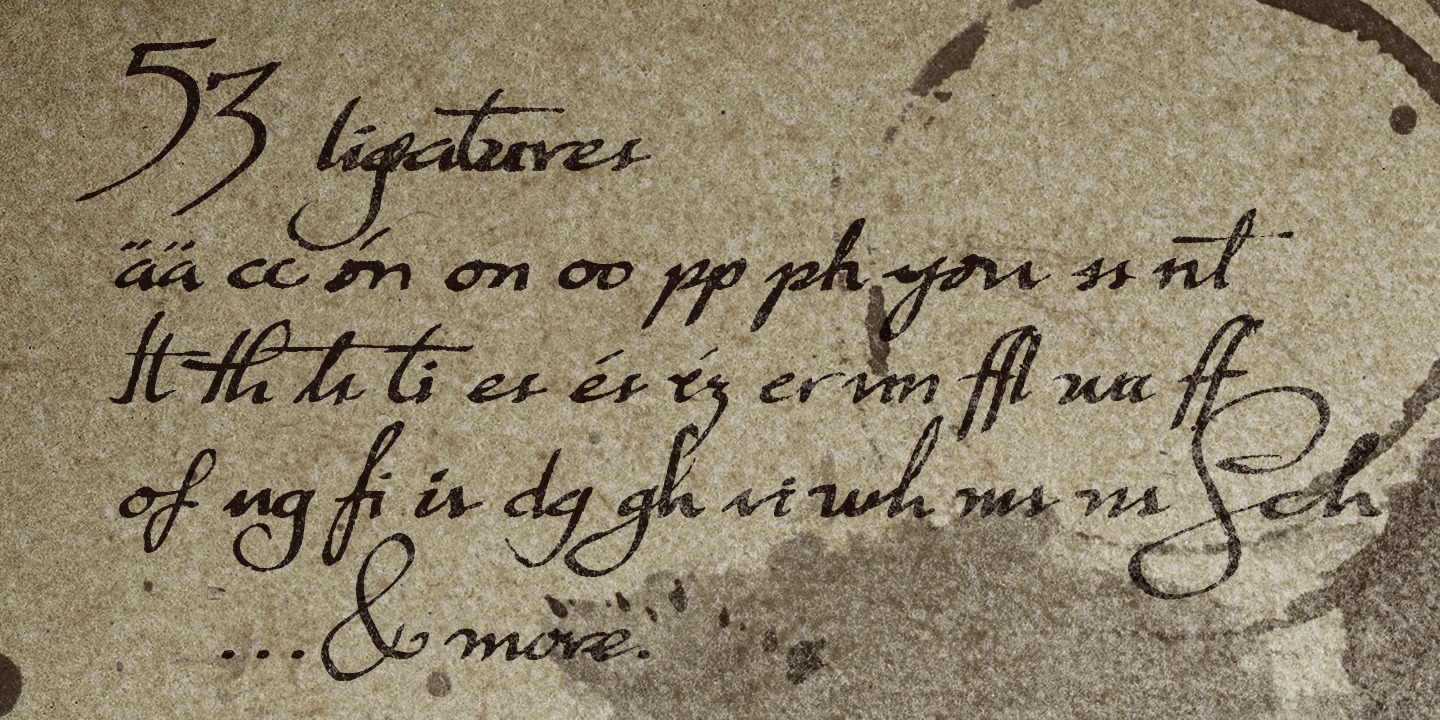 53 ligatures
ää cc ón on oo pp ph you ss nt
st th ts ti es és éz er un ffl ua ff
of ug fi is dg gh si wh ms ns Sch
...& more.